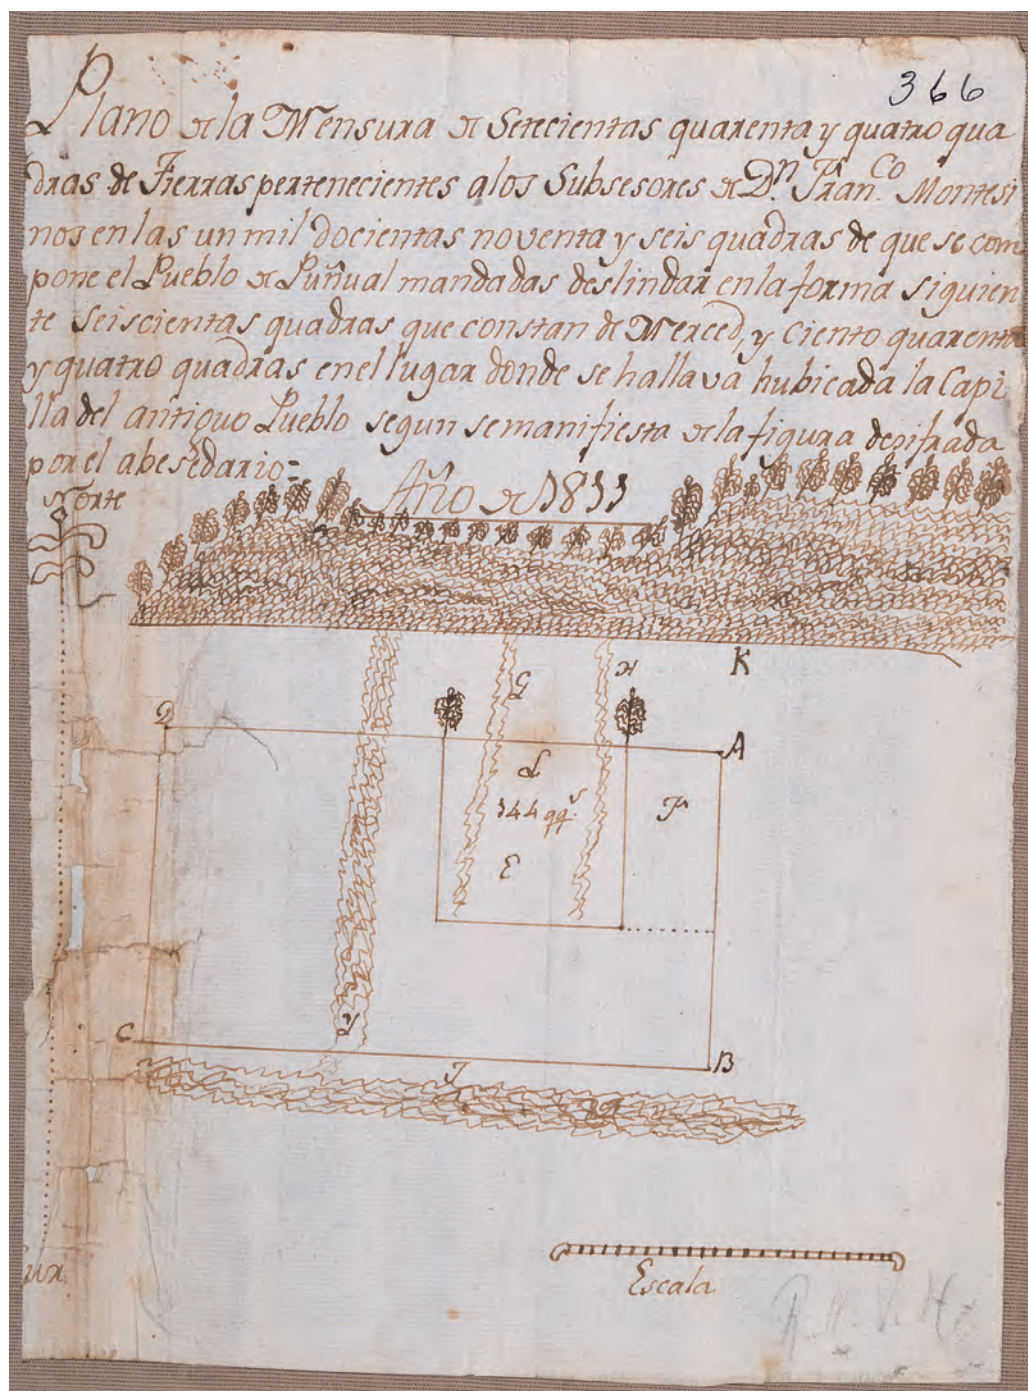 366
Plano de la Mensura de Setecientas quarenta y quatro qua
dras de Tierras pertenecientes alos Subsesores de Dn. Fran.co Montesi
nos en las un mil docientas noventa y seis quadras de que se com
pone el Pueblo de Puñual mandadas deslindar en la forma siguien
te seiscientas quadras que constan de Merced, y Ciento quarenta
y quatro quadras en el lugar donde se hallava hubicada la Capi
lla del antiguo Pueblo segun se manifiesta de la figura desifrada
por el abesedario=
Norte
Año de 1833
K
G
H
D
A
L
F
144 qqs.
E
C
B
Escala